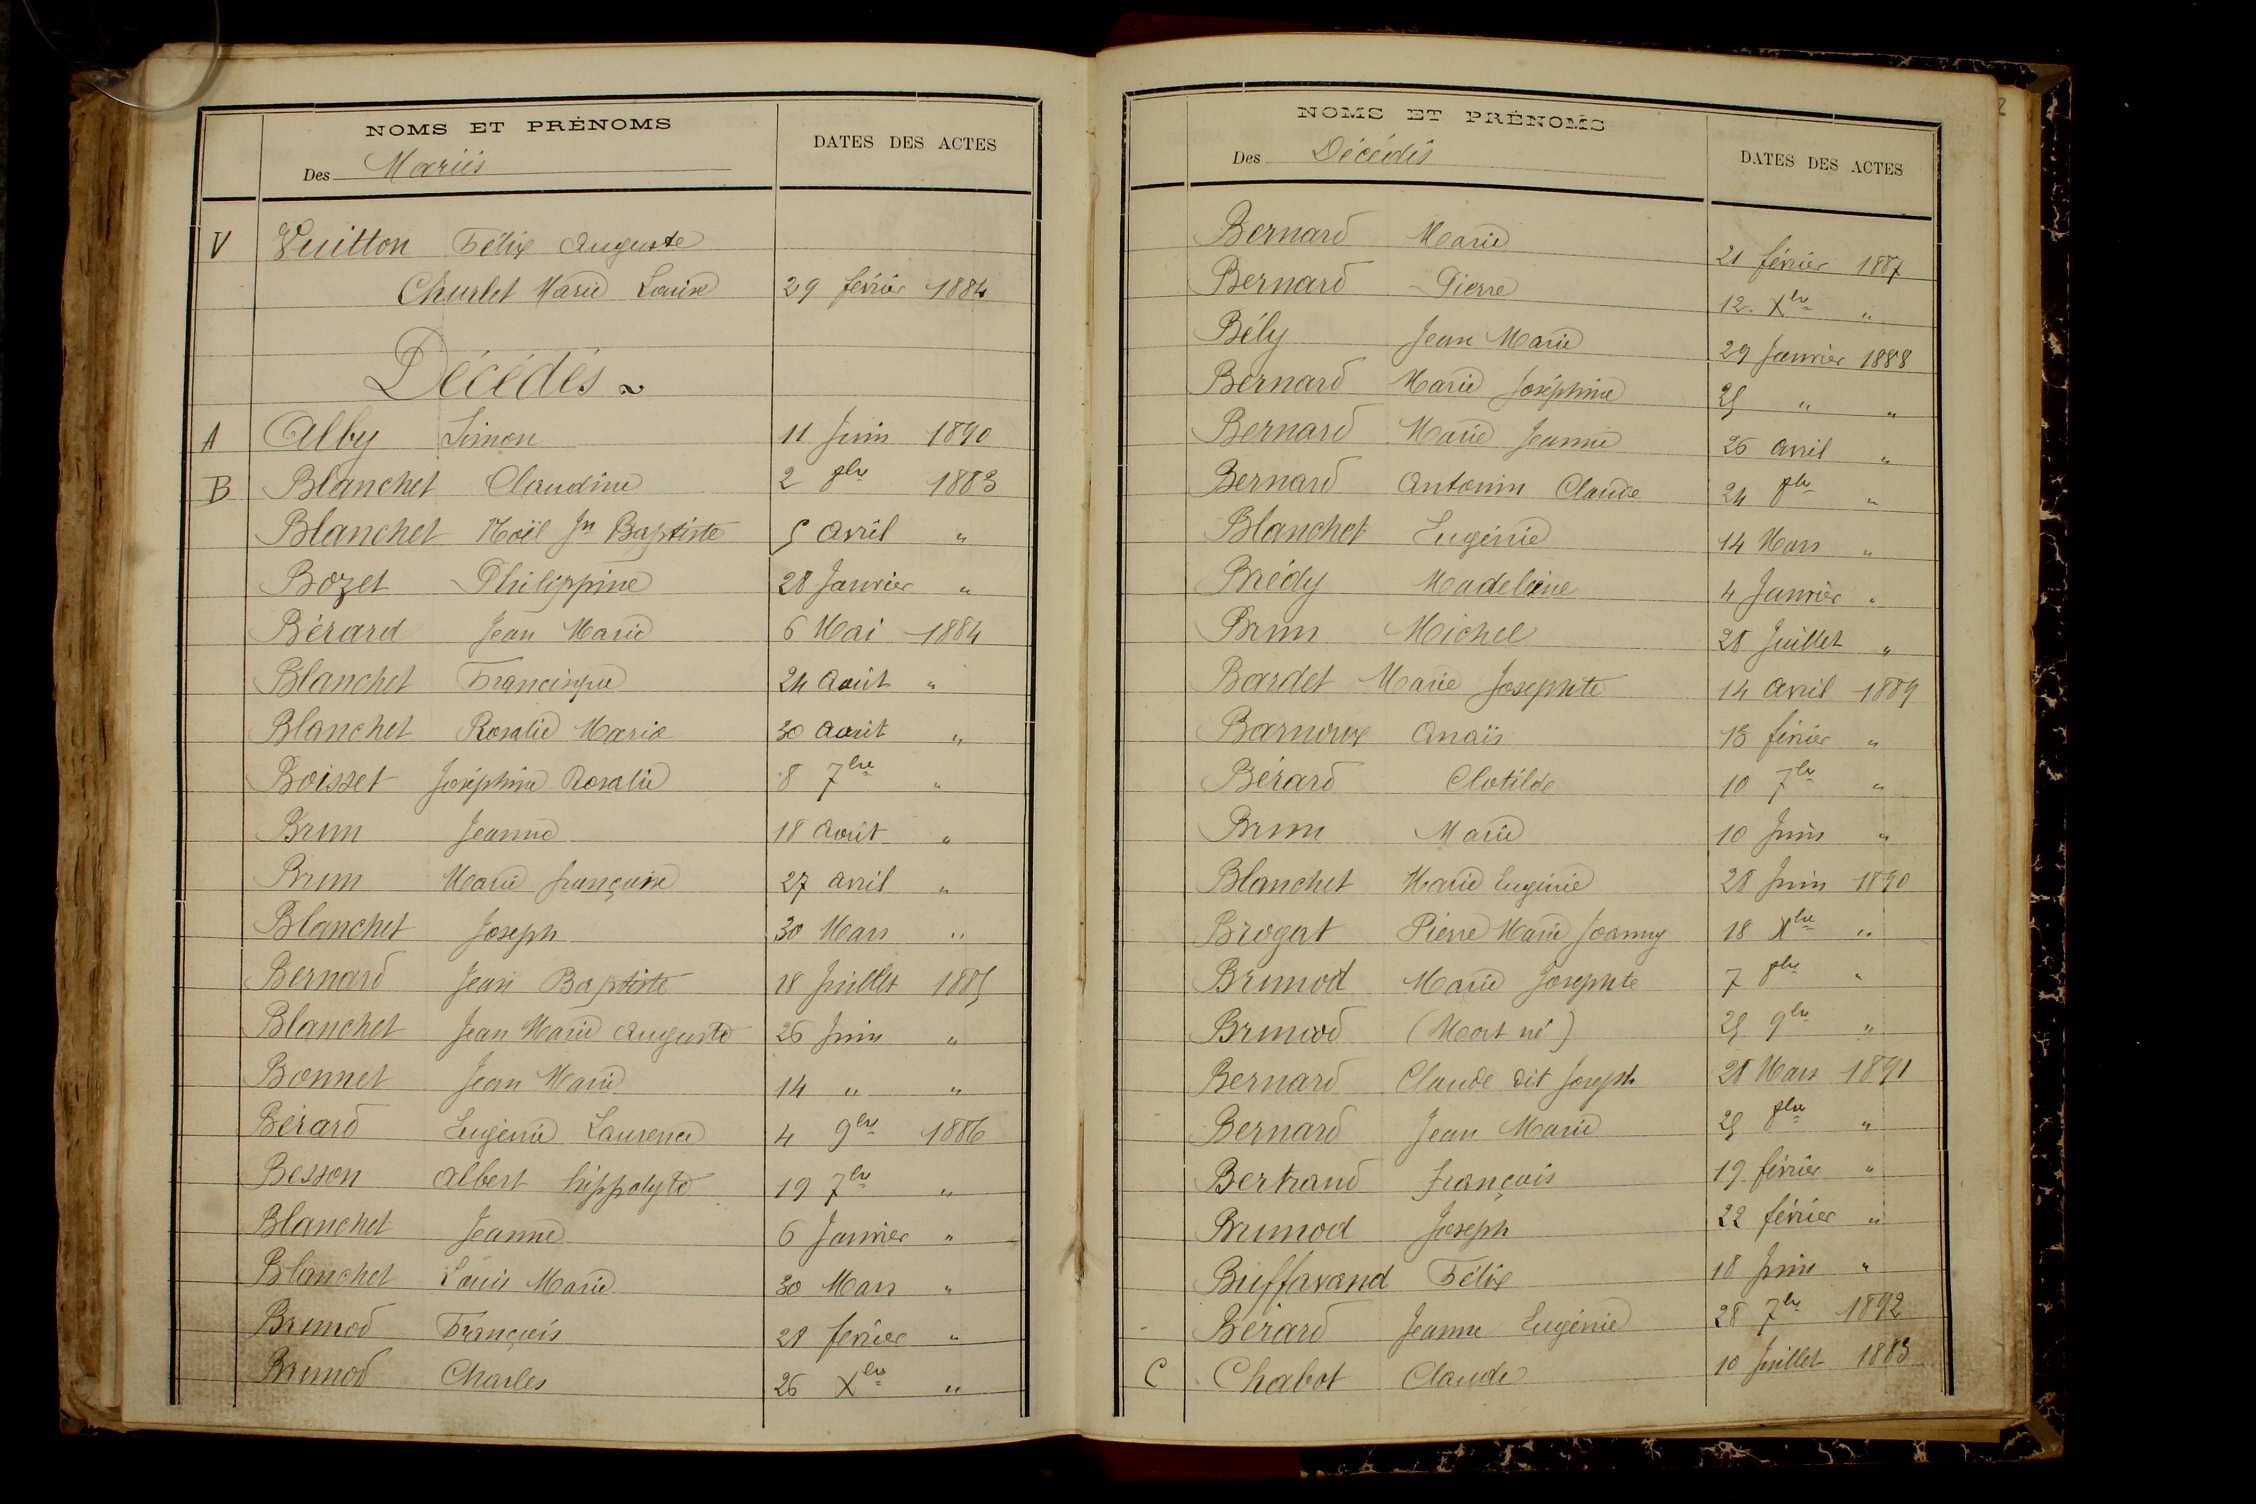 NOMS ET PRÉNOMS
Des Mariés
DATES DES ACTES
V Vuitton Félix Auguste
Churlet Marie Louise 29 février 1884
Décédés
A Alby Simon 11 Juin 1890
B Blanchet Claudine 2 8bre 1883
Blanchet Noël Jn Baptiste 5 avril "
Bozet Philippine 28 Janvier "
Bérard Jean Marie 6 Mai 1884
Blanchet Francisque 24 août "
Blanchet Rosalie Maria 30 août "
Boisset Joséphine Rosalie 8 7bre "
Brun Jeanne 18 août "
Brun Marie françoise 27 avril "
Blanchet Joseph 30 Mars "
Bernard Jean Baptiste 18 Juillet 1885
Blanchet Jean Marie Auguste 26 Juin "
Bonnet Jean Marie 14 " "
Bérard Eugénie Laurence 4 9bre 1886
Besson Albert hippolyte 19 7bre "
Blanchet Jeanne 6 Janvier "
Blanchet Louis Marie 30 Mars "
Brunod François 28 février "
Brunod Charles 26 Xbre "
2
NOMS ET PRÉNOMS
Des Décédés
DATES DES ACTES
Bernard Marie 21 février 1887
Bernard Pierre 12 Xbre "
Bély Jean Marie 29 Janvier 1888
Bernard Marie Joséphine 25 " "
Bernard Marie Jeanne 26 avril "
Bernard Antonin Claude 24 8bre "
Blanchet Eugénie 14 Mars "
Brédy Madeleine 4 Janvier "
Brun Michel 28 Juillet "
Bardet Marie Josephte 14 avril 1889
Barnoux Anaïs 13 février "
Bérard Clotilde 10 7bre "
Brun Marie 10 Juin "
Blanchet Marie Eugénie 28 Juin 1890
Brogat Pierre Marie Joanny 18 Xbre "
Brunod Marie Josephte 7 8bre "
Brunod (Mort né) 25 9bre "
Bernard Claude dit Joseph 28 Mars 1891
Bernard Jean Marie 25 8bre "
Bertrand François 19 février "
Brunod Joseph 22 février "
Buffavand Félix 18 Juin "
Bérard Jeanne Eugénie 28 7bre 1892
C Chabot Claude 10 Juillet 1883